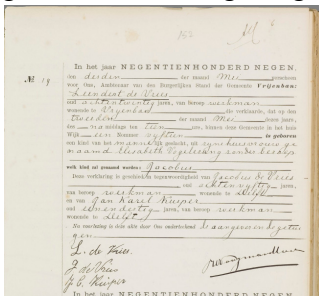 152
In het jaar NEGENTIENHONDERD NEGEN,
№ 19 den derden der maand Mei, verscheen
voor Ons, Ambtenaar van den Burgerlijken Stand der Gemeente Vrijenban:
Leendert de Vries
oud achtentwintig jaren, van beroep werkman
wonende te Vrijenban, die verklaarde, dat op den
tweeden der maand Mei dezes jaars,
des na middags ten tien ure, binnen deze Gemeente in het huis
Wijk een Nommer vijftien is geboren
een kind van het mannelijk geslacht, uit zijne huisvrouw ge-
naamd Elisabeth zonder beroep
welk kind zal genaamd worden: Jacobus
Deze verklaring is geschied in tegenwoordigheid van Jacobus de Vries
oud jaren,
van beroep werkman wonende te Delft
en van Jan Karel Kuiper
oud jaren, van beroep werkman
wonende te Delft
Na voorlezing is deze akte door Ons onderteekend de aangever en de getui-
gen
L. de Vries.
J. de Vries
J. C. Kuiper
In het jaar NEGENTIENHONDERD NEGEN